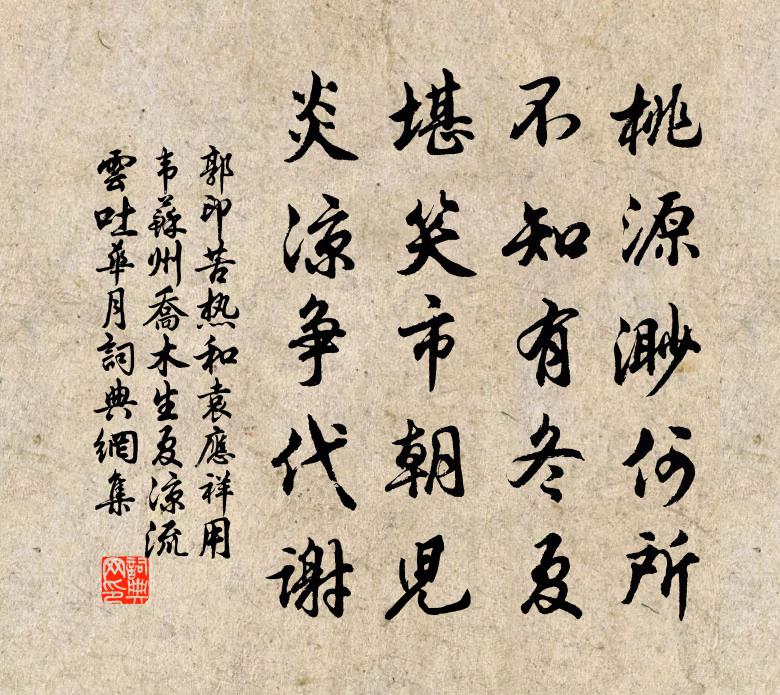 桃源渺何所
不知有冬夏
堪笑市朝児
炎凉争代谢
郭印苦热和袁應祥用
韦蘇州喬木生夏凉流
雲吐華月詞典網集
詞典網印